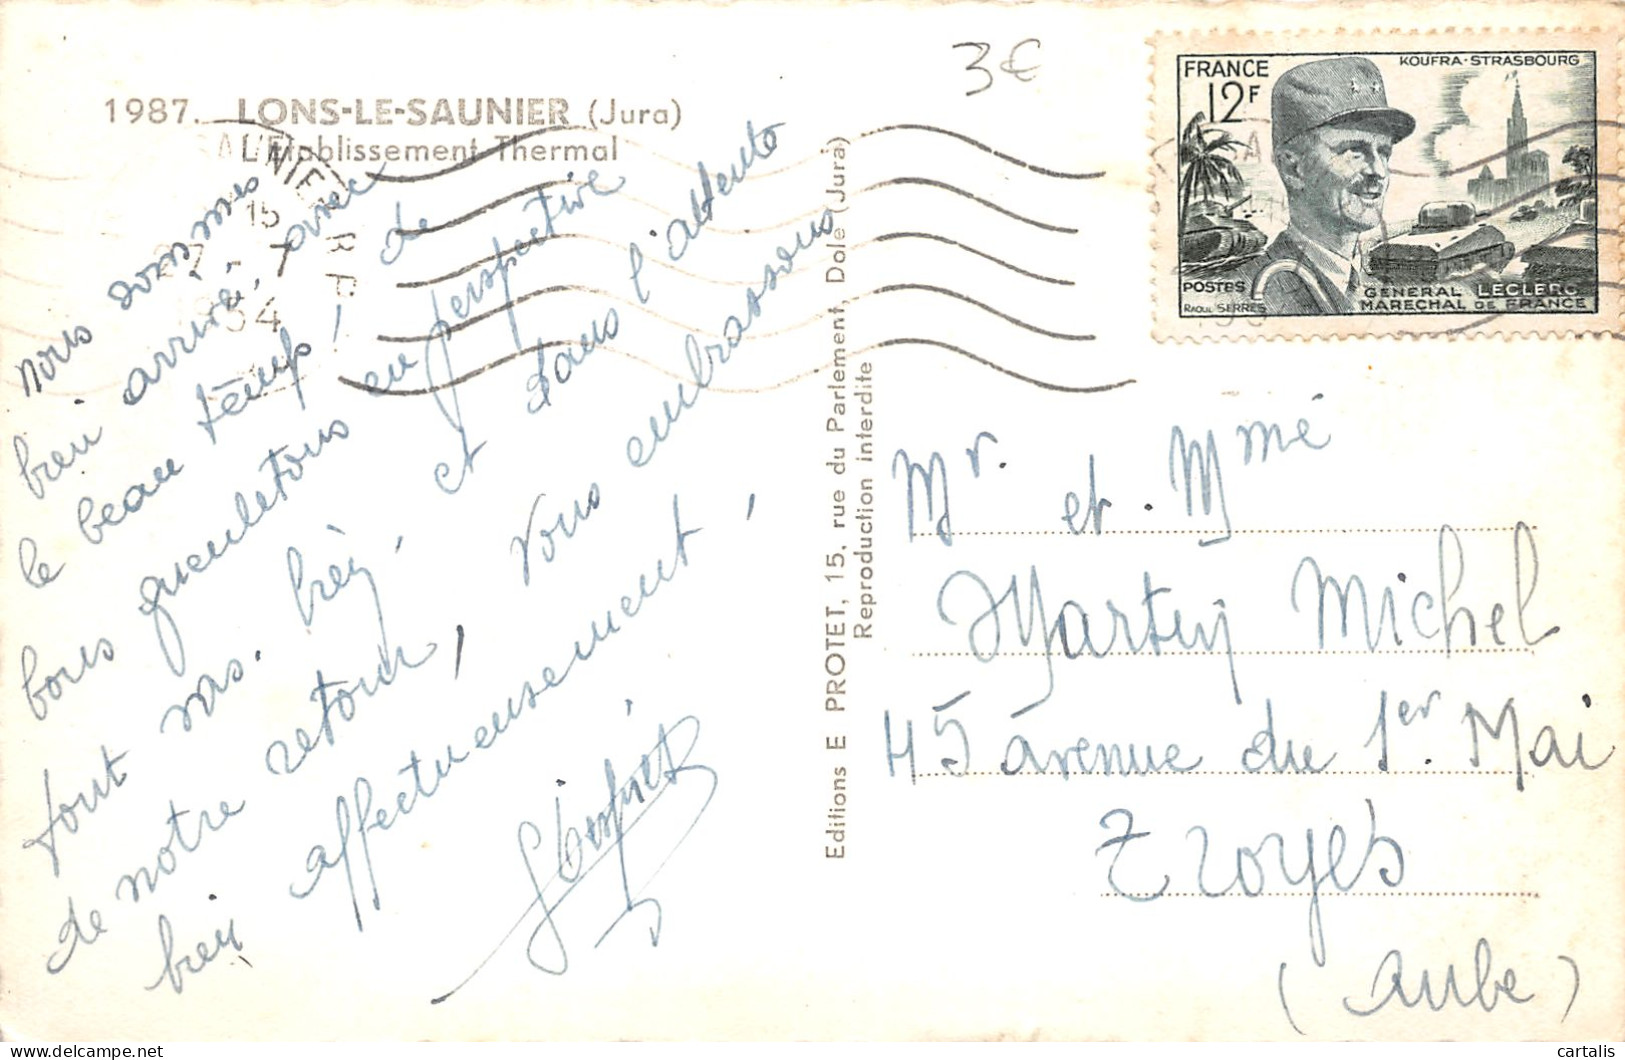 3€
1987. LONS-LE-SAUNIER (Jura)
L'Etablissement Thermal
FRANCE
12F
KOUFRA-STRASBOURG
POSTES
RAOUL SERRES
GENERAL LECLERC
MARECHAL DE FRANCE
15
nous sommes
bien arrivé, avec
le beau temps, de
bons gueuletons en perspective
tout vas bien, et dans l'attente
de notre retour, vous embrassons
bien affectueusement,
Editions E PROTET, 15, rue du Parlement, Dole (Jura)
Reproduction interdite
Mr. et Mme
Martin Michel
45 avenue du 1er Mai
Troyes
(Aube)
cartalis